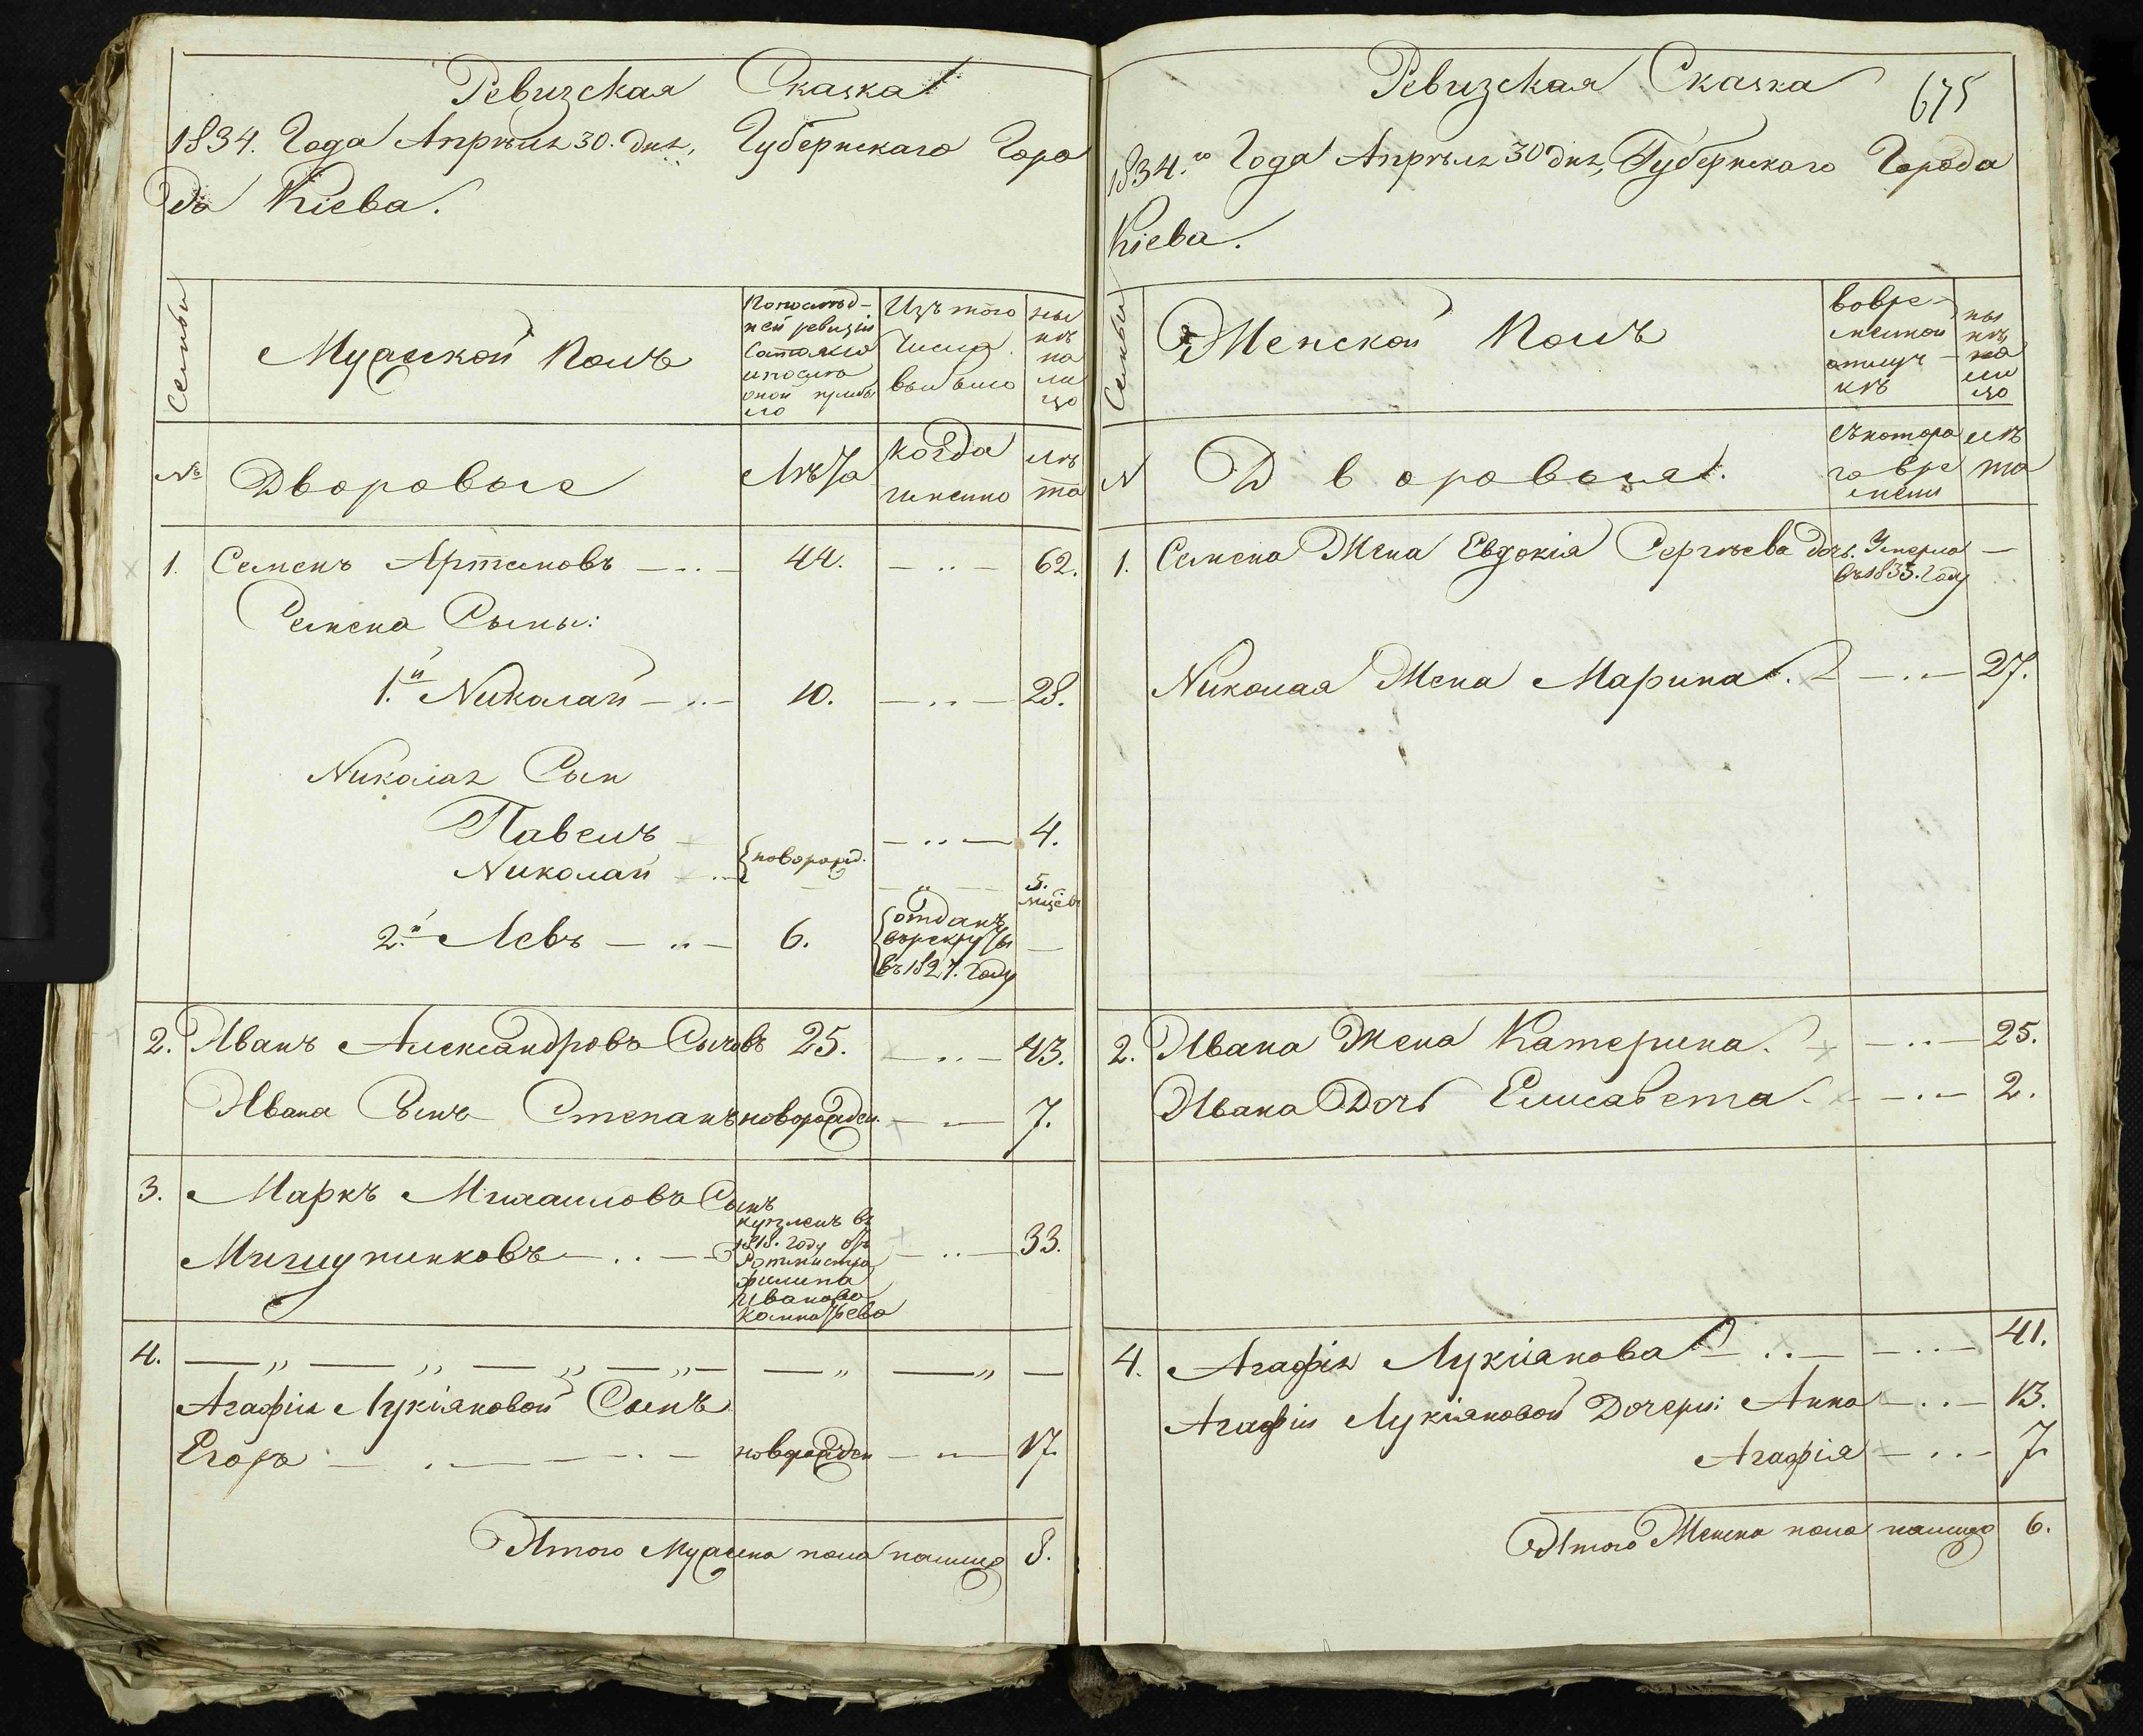 Ревизская Сказка
1834. Года Апрѣля 30. дня, Губернскаго Горо
да Кіева.
Семьи
Мужеской Полъ
Попослѣд-
ней ревизіи
Состояло
ипослѣ
оной прибы
ло
Изъ того
Числа
выбыло
ны
нѣ
на
ли
цо
№
Дворовые
Лѣта
когда
именно
лѣ
та
1. Семенъ Артемовъ — .. — 44. — .. — 62.
Семена Сыны:
1.й Николай — .. — 10. — .. — 28.
Николая Сын
Павелъ — — .. — 4.
Николай — .. — {новорожд. — „ — 5.
мцѣвъ
2.й Левъ — .. — 6. {отданъ
врекруты —
въ 1827. Году
2. Иванъ Александровъ Сычовъ 25. — .. — 43.
Ивана Сынъ Степанъ новорожден. — .. — 7.
3. Маркъ Михаиловъ Сынъ
Мишупинковъ — .. — купленъ въ
1818. году отъ
Ротмистра
Филипа
Иванова
— .. — 33.
4. — „ — „ — „ — „ — — „ — „ —
Агафіи Лукіяновой Сынъ
Егоръ — . — . — новорожден — .. — 17.
Итого Мужеска пола налицо 8.
Ревизская Сказка
675
1834.го Года Апрѣля 30 дня, Губернскаго Города
Кіева.
Семьи
Женской Полъ
вовре-
менной
отлуч-
кѣ
ны
нѣ
на
ли
цо
N
Дворовыя.
Съкотора
го вре
мени
лѣ
та
1. Семена Жена Евдокія Сергѣева дочь. Умерла —
въ 1833. Году
Николая Жена Марина. — .. — 27.
2. Ивана Жена Катерина. — .. — 25.
Ивана Дочь Елисавета — .. — 2.
4. Агафія Лукіянова — .. — — .. — 41.
Агафіи Лукіяновой Дочери: Анна — .. — 13.
Агафія — .. — 7.
Итого Женска пола налицо 6.